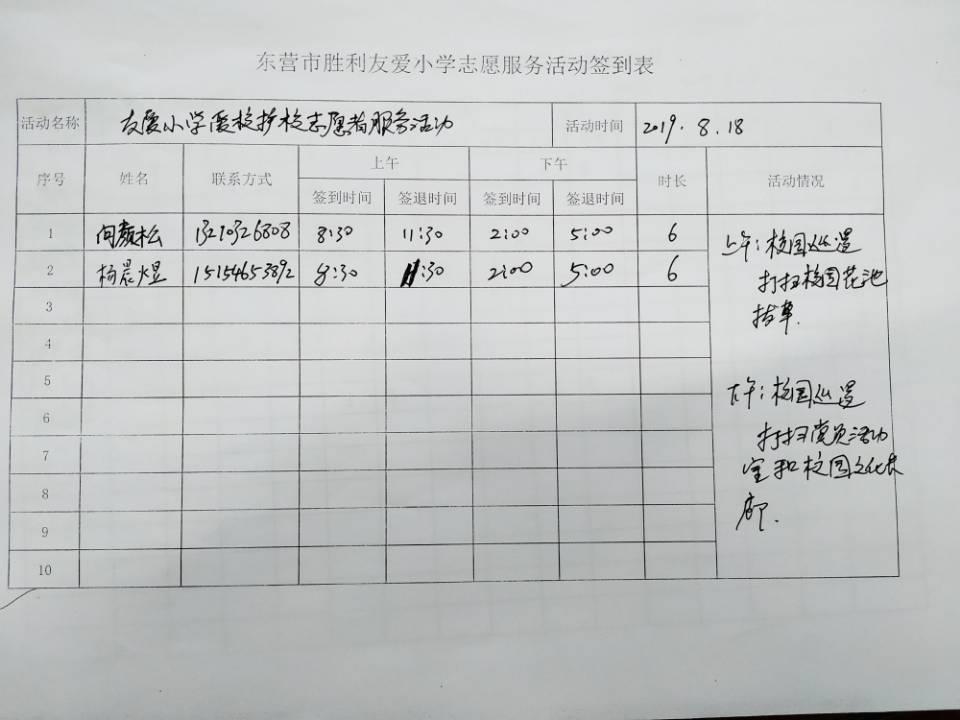 东营市胜利友爱小学志愿服务活动签到表
活动名称 友爱小学爱校护校志愿者服务活动 活动时间 2019.8.18
序号 姓名 联系方式 上午 下午 时长 活动情况
签到时间 签退时间 签到时间 签退时间
1 松 1321 8:30 11:30 2:00 5:00 6
2 杨晨煜 15154653892 8:30 11:30 2:00 5:00 6
3
4
5
6
7
8
9
10
上午:校园巡逻
打扫校园花池
拔草.
下午:校园巡逻
打扫党员活动
室和校园文化长
廊.